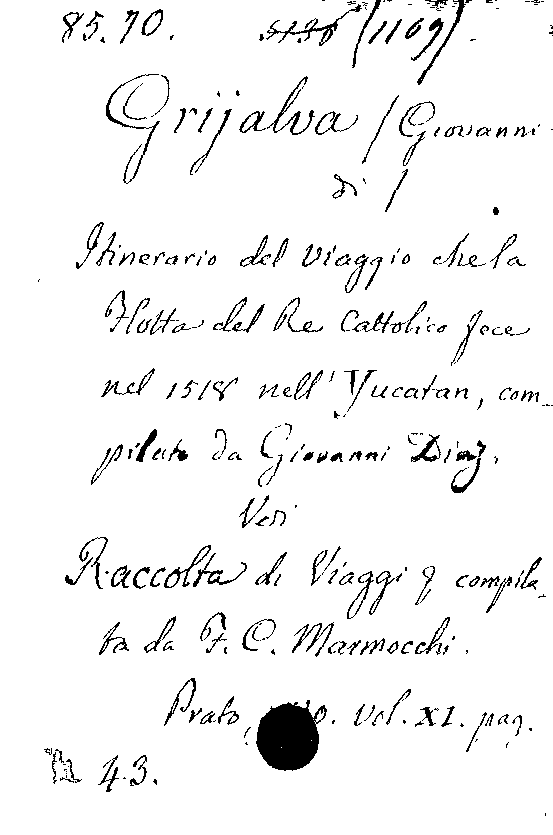 85.70. 5136 (1109).
Grijalva / Giovanni
di /
Itinerario del Viaggio che la
Flotta del Re Cattolico fece
nel 1518 nell' Yucatan, com-
pilato da Giovanni Diaz.
Vedi
Raccolta di Viaggi & compila-
ta da F. C. Marmocchi.
Prato, Vol. XI. pag.
43.